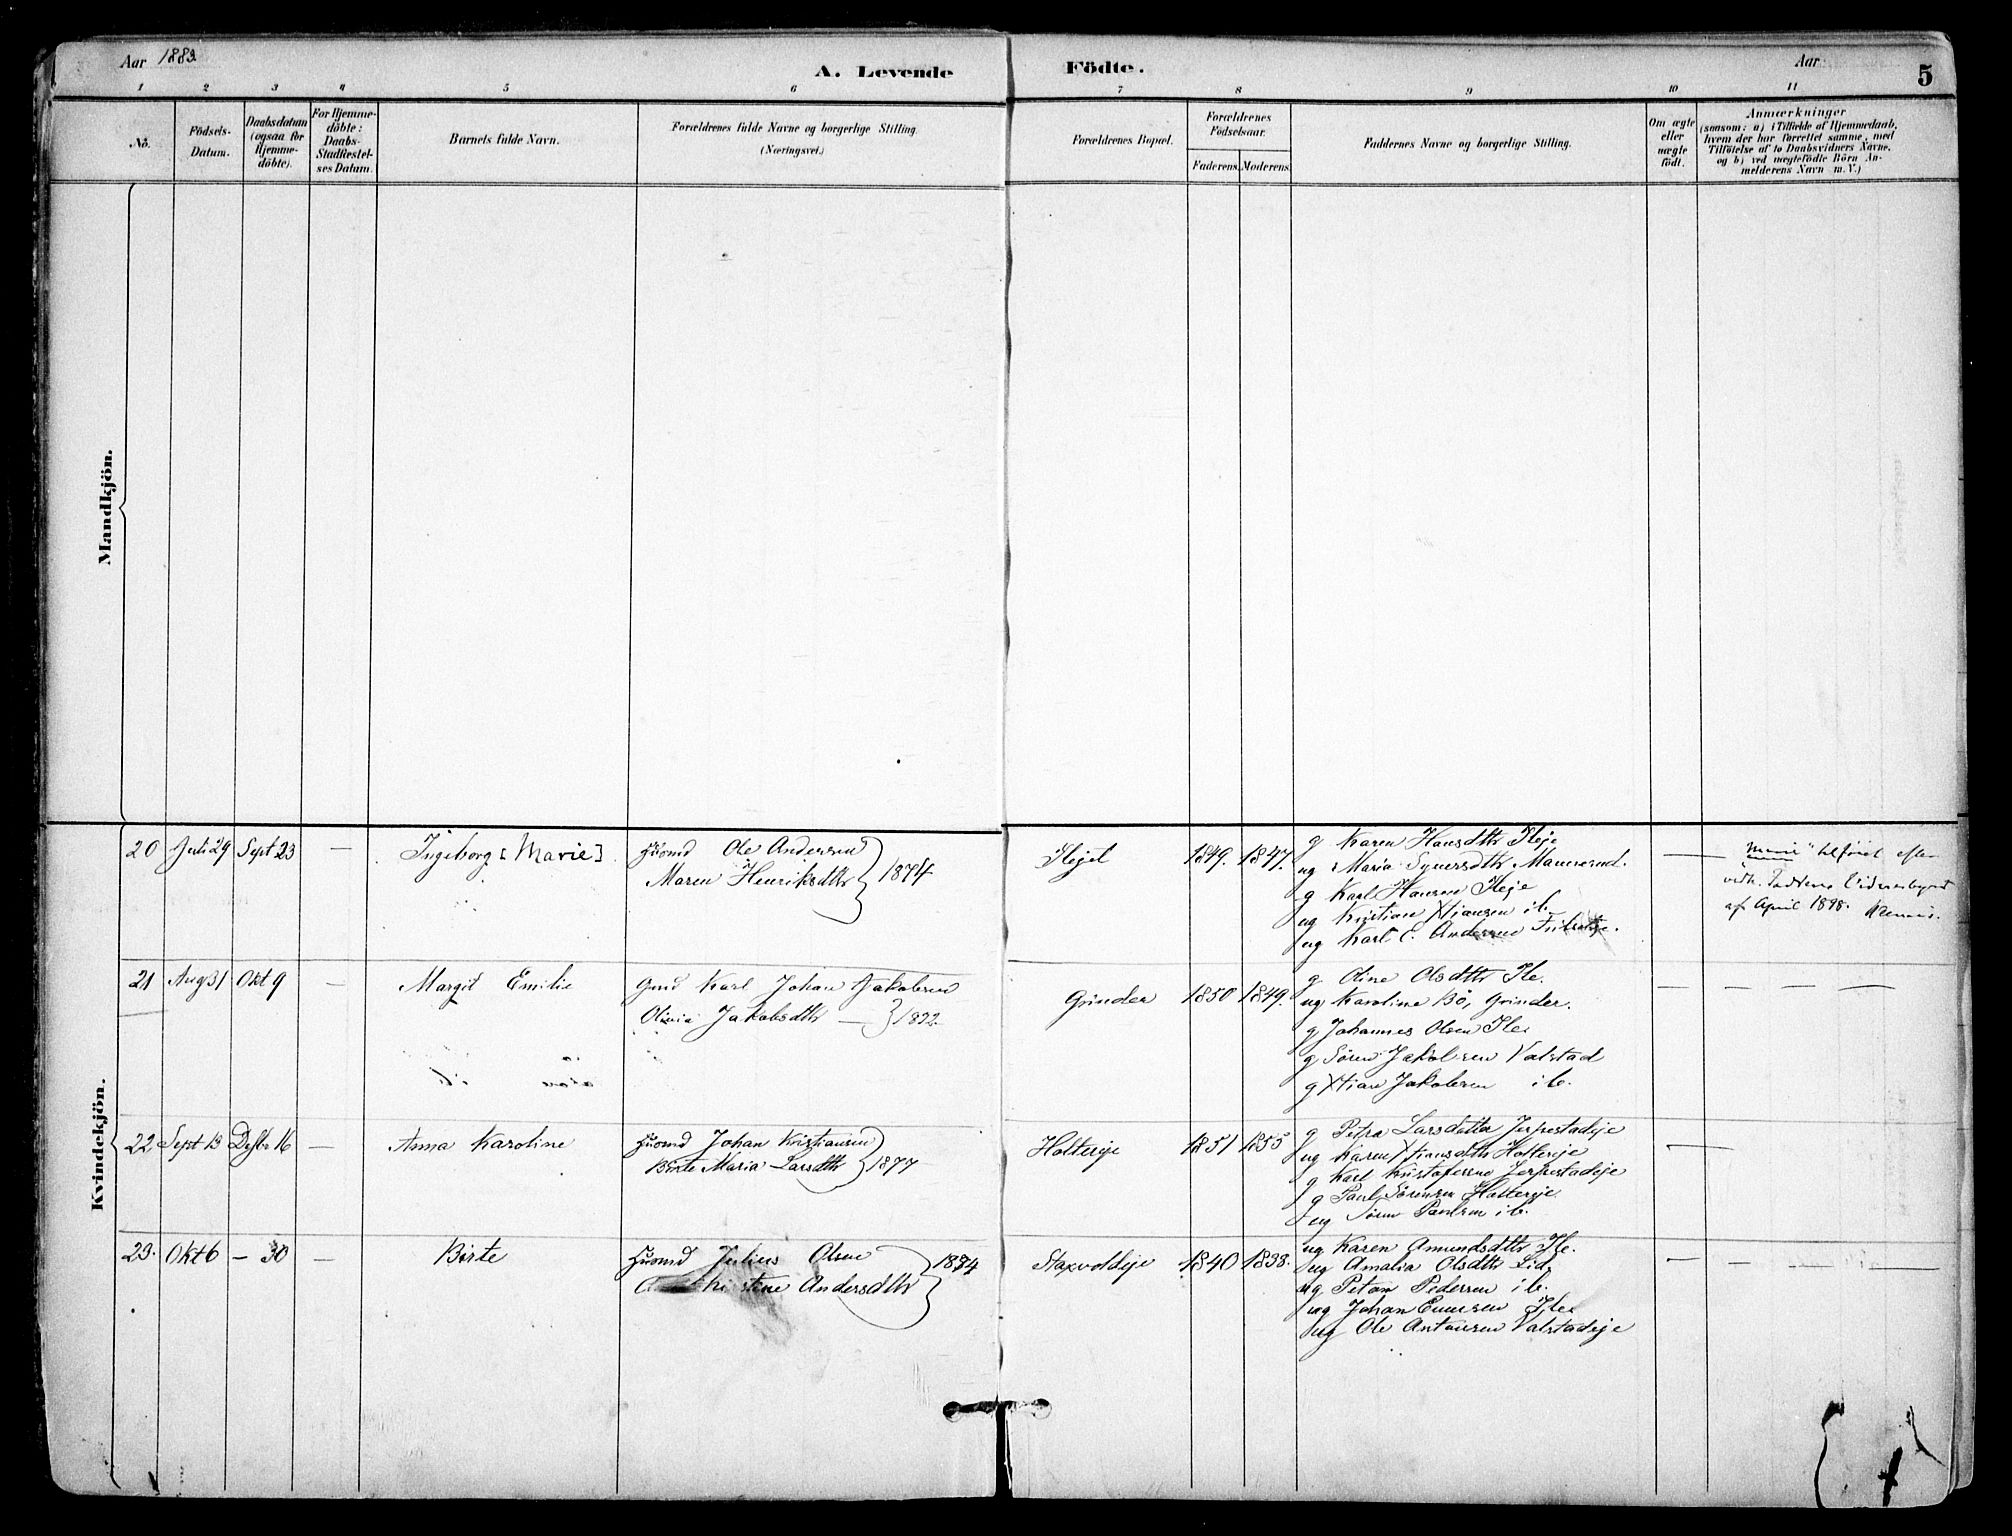 Aar 1883
A. Levende Födte.
Aar
5
1 2 3 4 5 6 7 8 9 10 11
No.
Födsels-
Datum.
Daabsdatum
(ogsaa for
Hjemme-
döbte).
For Hjemme-
döbte:
Daabs-
Stadfæstel-
ses Datum.
Barnets fulde Navn.
Forældrenes fulde Navne og borgerlige Stilling.
(Næringsvei.)
Forældrenes Bopæl.
Forældrenes
Födselsaar.
Faderens. Moderens.
Faddernes Navne og borgerlige Stilling.
Om ægte
eller
uægte
födt.
Anmærkninger
(saasom: a) i Tilfælde af Hjemmedaab,
hvem der har forrettet samme, med
Tilföielse af to Daabsvidners Navne,
og b) ved uægtefödte Börn An-
melderens Navn m. V.)
Mandkjön.
Kvindekjön.
20 Juli 29 Sept 23 — Ingeborg [Marie]
Husmd Ole Andersen
Maren Henriksdtr } 1874
Ilejet 1849. 1847.
g Karen Hansdtr Ileje
ug Maria Syversdtr Maurerud.
g Karl Hansen Ileje
ug Kristian Hansen i b.
ug Karl E. Andersen
—
"Marie" tilføiet efter
af April 1898.
21 Aug 31 Okt 9 — Margit Emilie
Gmd Karl Johan Jakobsen
Olivia Jakobsdtr — }
Grinder 1850 1849.
g Oline Olsdtr Ile.
ug Karoline Bö, Grinder.
g Johannes Olsen Ile
g Sören Jakobsen Valstad
g Hans Jakobsen i b.
— — — —
22 Sept 13 Desbr 16 — Anna Karoline
Husmd Johan Kristiansen
Birte Maria Larsdtr } 1877
Holteeje 1851 1855
g Petra Larsdatter Jerpestadeje
ug Karen Hansdtr Holteeje
g Karl Kristofersen Jerpestadeje
g Paul Sörensen Holteeje
ug Sören Paulsen i b.
—
23. Okt 6 — 30 — Birte
Husmd Julius Olsen
Andersdtr } 1874
Staxvoldeje 1840 1838.
ug Karen Amundsdtr Ile.
ug Amalia Olsdtr Lid
ug Petan Pedersen i b.
ug Johan Evensen Ile
ug Ole Antonsen Valstadeje
— — — — —